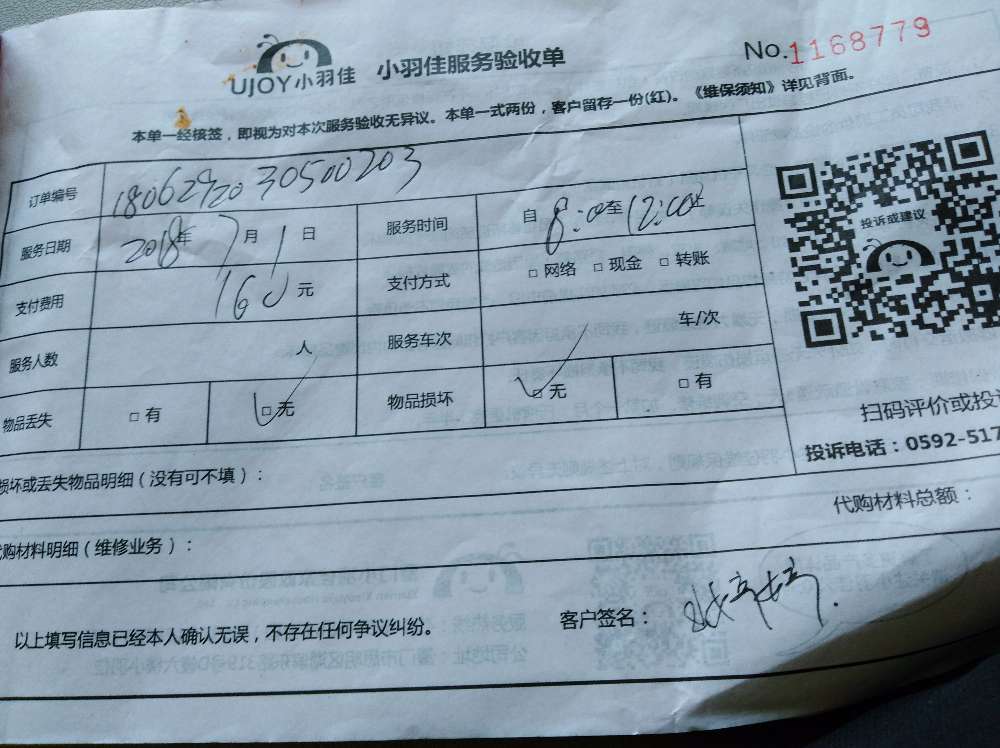 UJOY小羽佳 小羽佳服务验收单 No.1168779
本单一经核签，即视为对本次服务验收无异议。本单一式两份，客户留存一份(红)。《维保须知》详见背面。
订单编号 1806292030500203
服务日期 2018年7月1日 服务时间 自8:00至12:00止
支付费用 160元 支付方式 □ 网络 □ 现金 □ 转账
服务人数 人 服务车次 车/次
物品丢失 □ 有 □ 无 物品损坏 □ 无 □ 有
投诉或建议
扫码评价或投
投诉电话：0592-517
损坏或丢失物品明细（没有可不填）：
代购材料总额：
购材料明细（维修业务）：
以上填写信息已经本人确认无误，不存在任何争议纠纷。 客户签名：